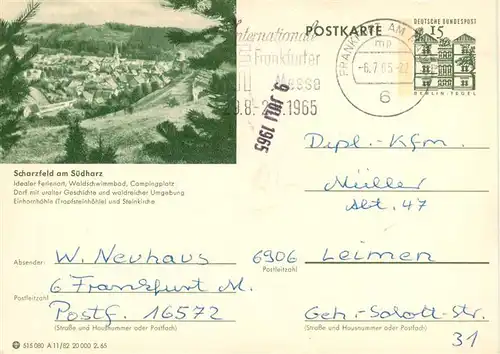 Internationale
Frankfurter
Messe
29.8.-2.9.1965
POSTKARTE
FRANKFURT AM
mp
-6.7.65-22
6
DEUTSCHE BUNDESPOST
15
BERLIN-TEGEL
9. JULI 1965
Scharzfeld am Südharz
Idealer Ferienort, Waldschwimmbad, Campingplatz
Dorf mit uralter Geschichte und waldreicher Umgebung
Einhornhöhle (Tropfsteinhöhle) und Steinkirche
Dipl.-Kfm.
Müller
Abt. 47
Absender: W. Neuhaus
6 Frankfurt M.
Postleitzahl
Postf. 16572
(Straße und Hausnummer oder Postfach)
6906 Leimen
Postleitzahl
Geh.-Schott-Str.
31
(Straße und Hausnummer oder Postfach)
515 080 A 11/82 20 000 2.65